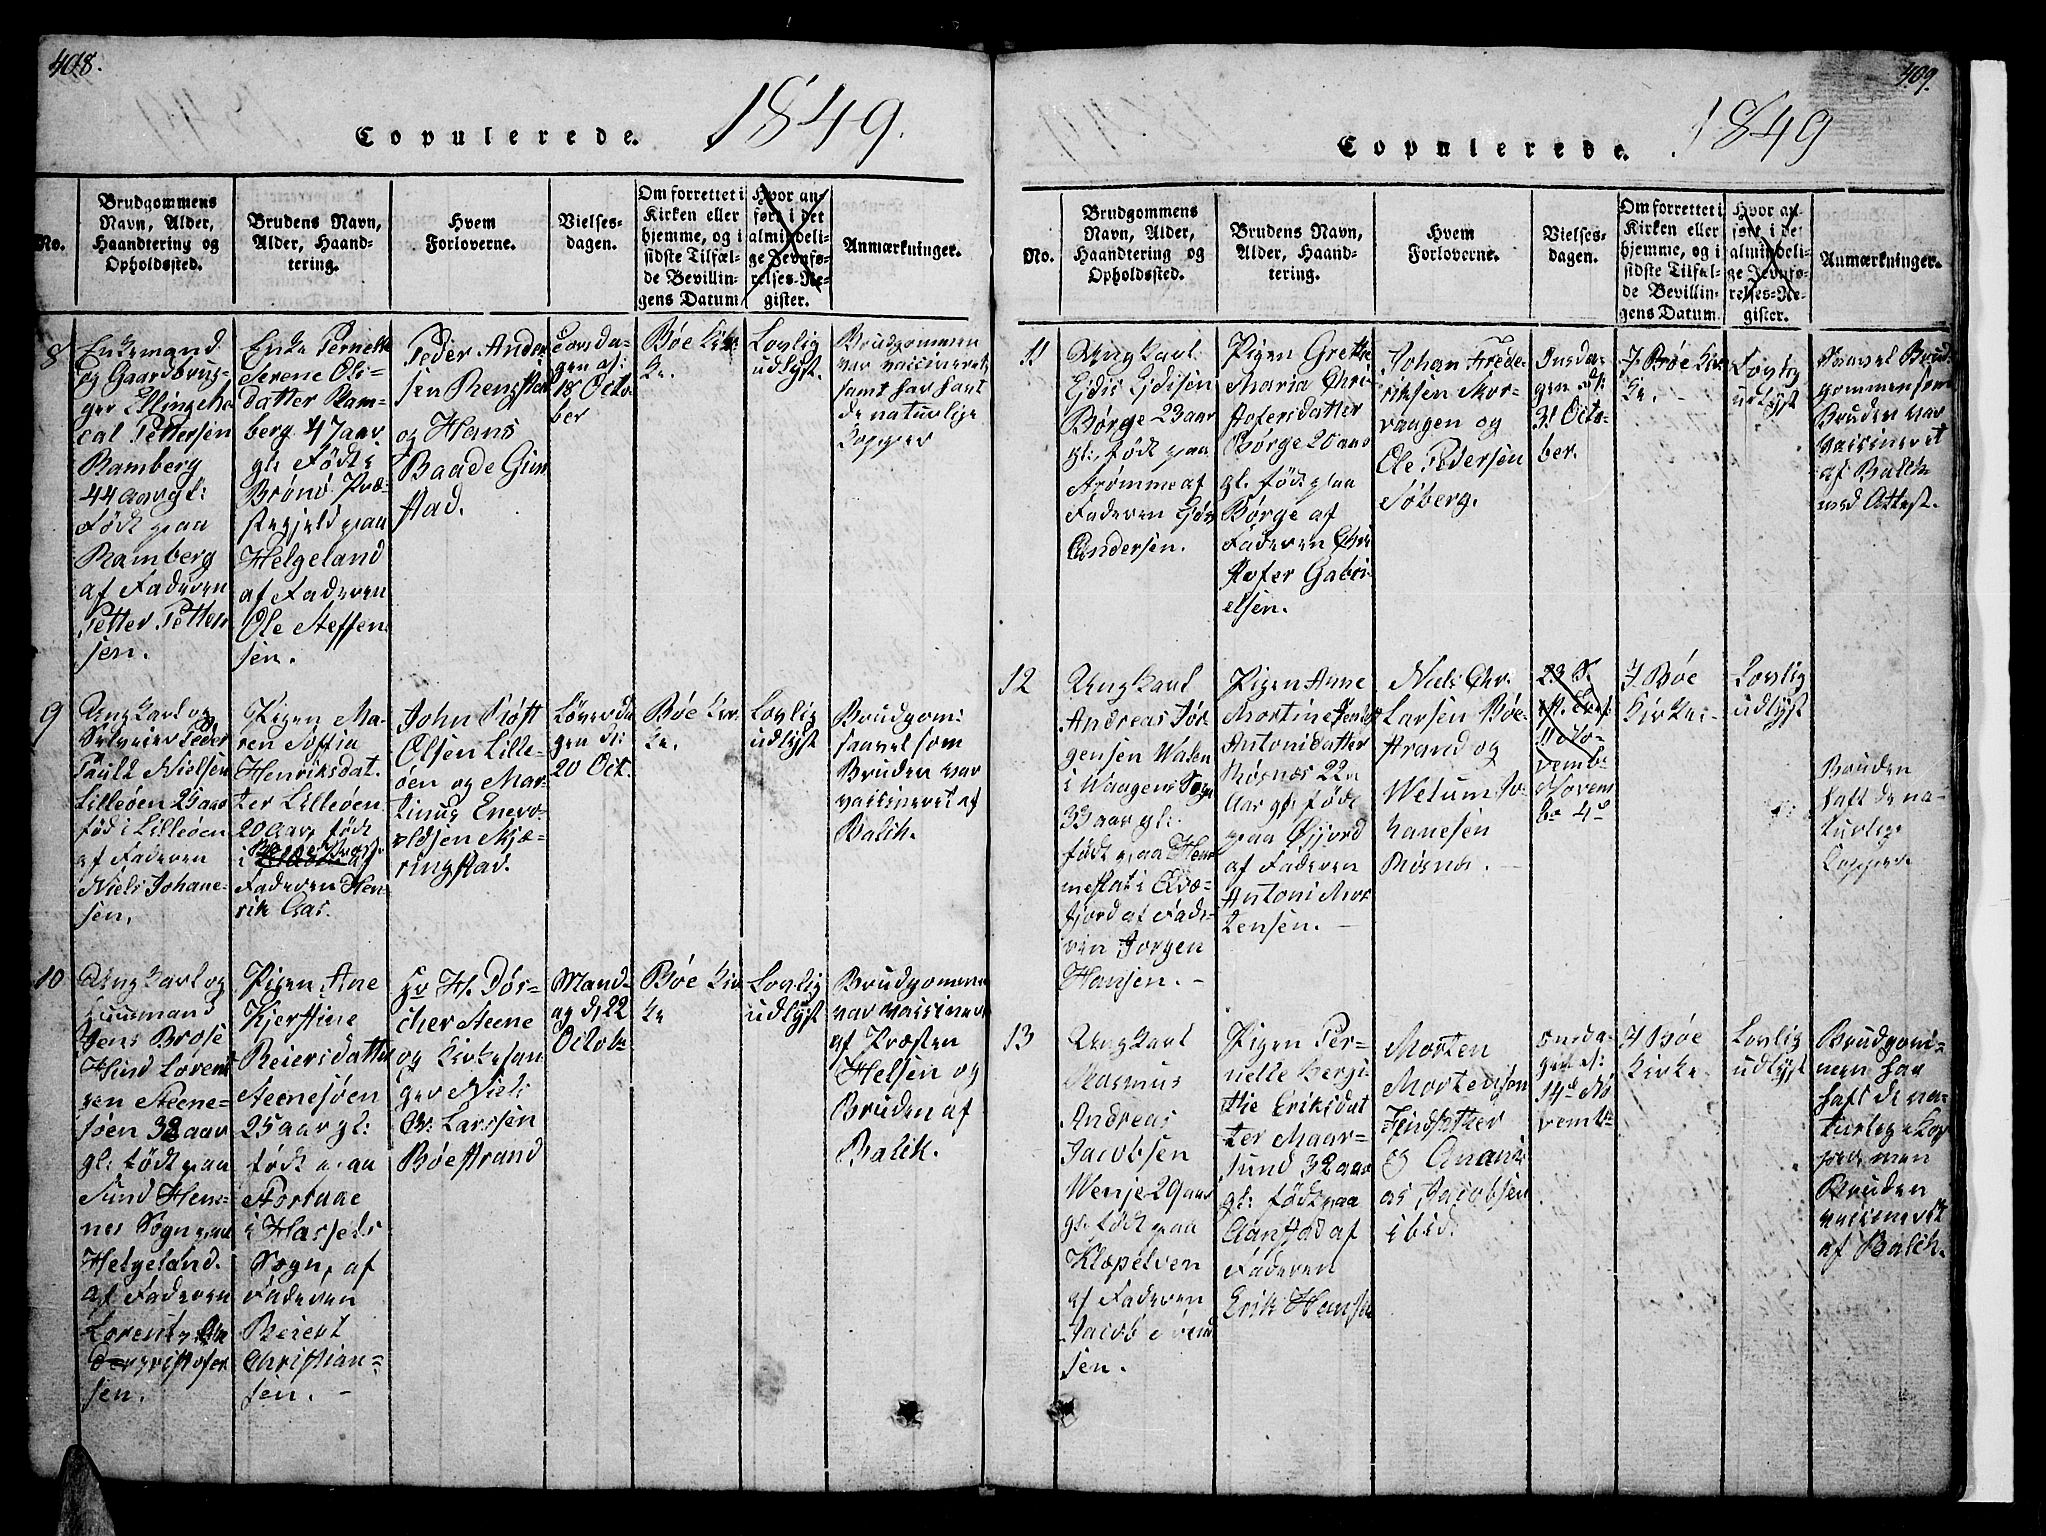 408.
Copulerede. 1849.
No.
Brudgommens
Navn, Alder,
Haandtering og
Opholdssted.
Brudens Navn,
Alder, Haand-
tering.
Hvem
Forloverne.
Vielses-
dagen.
Om forrettet i
Kirken eller
hjemme, og i
sidste Tilfæl-
de Bevillin-
gens Datum
Hvor an-
ført i det
almindeli-
ge Jevnfø-
relses-Re-
gister.
Anmærkninger.
8
Enkemand
og Gaardbrug-
ger Ellingcho
cal Pettersen
Ramberg
44 aar gl:
Født paa
Ramberg
af Faderen
Petter Petter
sen.
Enke Pernelle
Serene Ols-
datter Ram-
berg 47 aar
gl: Født
Brønø Præ-
stegjeld paa
Helgeland
af Faderen
Ole Steffen
sen.
Peder Ander
sen Rengstad
og Hans
Baade Gim
stad.
Torsda-
gen d:
18 Octo-
ber
Bøe Kir
ke.
Lovlig
udlyst.
Brudgommen
var vaccineret
samt har havt
de naturlige
Kopper
9
Ungkarl og
Peder
Pauli Nielsen
Lilleøen 25 aar
fød i Lilleøen
af Faderen
Niels Johane-
sen.
Pigen Ma-
ren Soffia
Henriksdat-
ter Lilleøen
20 aar, født
i af
Faderen Hen-
rik Aas.
John Røst
Olsen Lille-
øen og Mar-
tinus Enevo-
ldsen Skjæ-
ringstad.
Løverda
gen d:
20 Oct.
Bøe Kir-
ke.
Lovlig
udlyst
Brudgom:
saavel som
Bruden var
vaccineret af
Balch.
10
Ungkarl og
Huusmand
Jens Brose
Hind Lorent
zen Steene-
søen 32 aar
gl: født paa
Sund Hem-
nes Sogn paa
Helgeland
af Faderen
Lorentz
sen.
Pigen Ane
Kjerstine
Reiersdatter
Steenesøen
25 aar gl:
født paa
Stortuae
i Hassels
Sogn, af
Faderen
Reiert
Christian-
sen. -
Hr H. Dör-
cher Steene
og Kirkesan
ger Niels
Chr: Larssen
Bøestrand
Mand-
ag d, 22
Octob:
Bøe Kir
ke
Lovlig
udlyst
Brudgommen
var vaccineret
af Præsten
Helsen og
Bruden af
Balch.
409.
Copulerede. 1849
No.
Brudgommens
Navn, Alder,
Haandtering og
Opholdssted.
Brudens Navn,
Alder, Haand-
tering.
Hvem
Forloverne.
Vielses-
dagen.
Om forrettet i
Kirken eller
hjemme, og i
sidste Tilfæl-
de Bevillin-
gens Datum.
Hvor an-
ført i det
almindeli-
ge Jevnfø-
relses-Re-
gister.
Anmærkninger.
11
Ungkarl
Gjøis Gjøisen
Børge 23 aar
gl: født paa
Strømme af
Faderen Gjøis
Andersen.
Pigen Grethe
Maria Chri
stofersdatter
Børge 20 aar
gl: født paa
Børge af
Faderen Chri
stofer Gabri-
elsen.
Johan Frede-
riksen Skor-
vaagen og
Ole Pedersen
Søberg.
Onsda-
gen d:
31 Octo-
ber.
I Bøe Kir
ke.
Lovlig
udlyst
Saavel Brud
gommen som
Bruden var
vaccineret
af Balch
med Attest.
12
Ungkarl
Andreas Jør-
gensen Walen
i Waagens Sogn
33 aar gl:
født paa Hem
mestad i Qvæ-
fjord af Fade-
ren Jørgen
Hansen. -
Pigen Anne
Mortine
Antonidatter
Risnæs 22
Aar gl: født
paa Øfjord
af Faderen
Antoni Mor
tensen. -
Niels Chr:
Larsen Bøe-
strand og
Welum Jo-
hanesen
Risnæs. -
23 S.
11 No-
vemb:
Novem
b: 4de
I Bøe
Kirke.
Lovlig
udlyst
Bruden
haft de na-
turlige
Kopper.
13
Ungkarl
Rasmus
Andreas
Jacobsen
Wenje 29 aar
gl: født paa
Klopelven
af Faderen
Jacob Svend
sen.
Pigen Per-
nelle Bergi
the Eriksdat
ter Maar-
sund 32 aar
gl: født paa
Aanstad af
Faderen
Erik Hansen
Morten
Mortensen
og Anani-
as Jacobsen
ibid.
Onsda-
gen d:
14de No
vemb:
I Bøe
Kirke.
Lovlig
udlyst
Brudgom-
men har
haft de na-
turlige Kop
per, men
Bruden
vaccineret
af Balch.